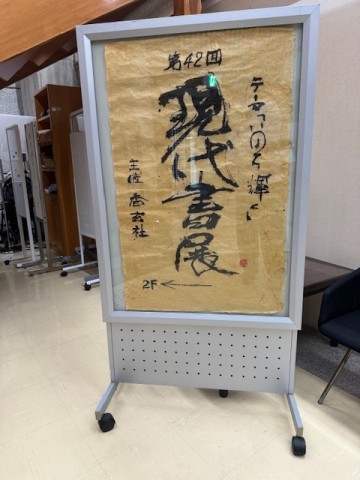 第42回
テーマ「いのち輝く」
現代書展
主催 玄社
2F ←